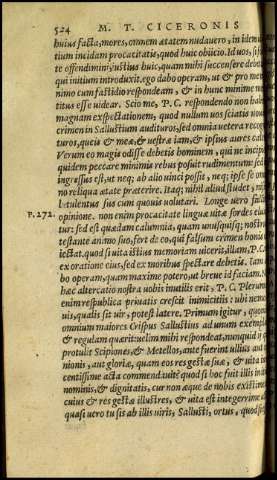 524 M. T. CICERONIS
huius facta, mores, omnem ætatem nudauero, in idem
tium incidam procacitatis, quod huic obiicio. Id uos, si
te offendimini, iustius huic, quàm mihi succensere debe
qui initium introduxit. ego dabo operam, ut & pro me
nimo cum fastidio respondeam, & in hunc minime
titus esse uidear. Scio me, P. C. respondendo non habe
magnam expectationem, quod nullum uos sciatis nouum
crimen in Sallustium audituros, sed omnia uetera recog
turos, queis & meæ, & uestræ iam, & ipsius aures cale
Verum eo magis odisse debetis hominem, qui ne incipi
quidem peccare minimis rebus posuit rudimentum: sed
ingressus est, ut neq; ab alio uinci possit, neq; ipse se om
no reliqua ætate præterire. Itaq; nihil aliud studet, nisi
Lutulentus sus cum quouis uolutari. Longe uero fallit
P. 272. opinione. non enim procacitate linguæ uitæ sordes eluu
tur: sed est quædam calumnia, quam unusquisq; nostru
testante animo suo, fert de eo, qui falsum crimen bonis
iectat. quod si uita istius memoriam uicerit, illam, P. C.
ex oratione eius, sed ex moribus spectare debetis. iam
bo operam, quàm maxime potero, ut breue id faciam. N
hæc altercatio nostra uobis inutilis erit, P. C. Plerum
enim respublica priuatis crescit inimicitiis: ubi nemo
uis, qualis sit uir, potest latere. Primum igitur, quoniam
omnium maiores Crispus Sallustius ad unum exemplum
& regulam quærit: uelim mihi respondeat, nunquid ii
protulit Scipiones, & Metellos, ante fuerint ullius aut
nionis, aut gloriæ, quàm eos res gestæ suæ, & uita
centissime acta commendauit? quod si hoc fuit illis in
nominis, & dignitatis, cur non æque de nobis existime
cuius & res gestæ illustres, & uita est integerrime
quasi uero tu sis ab illis uiris, Sallusti, ortus, quod si